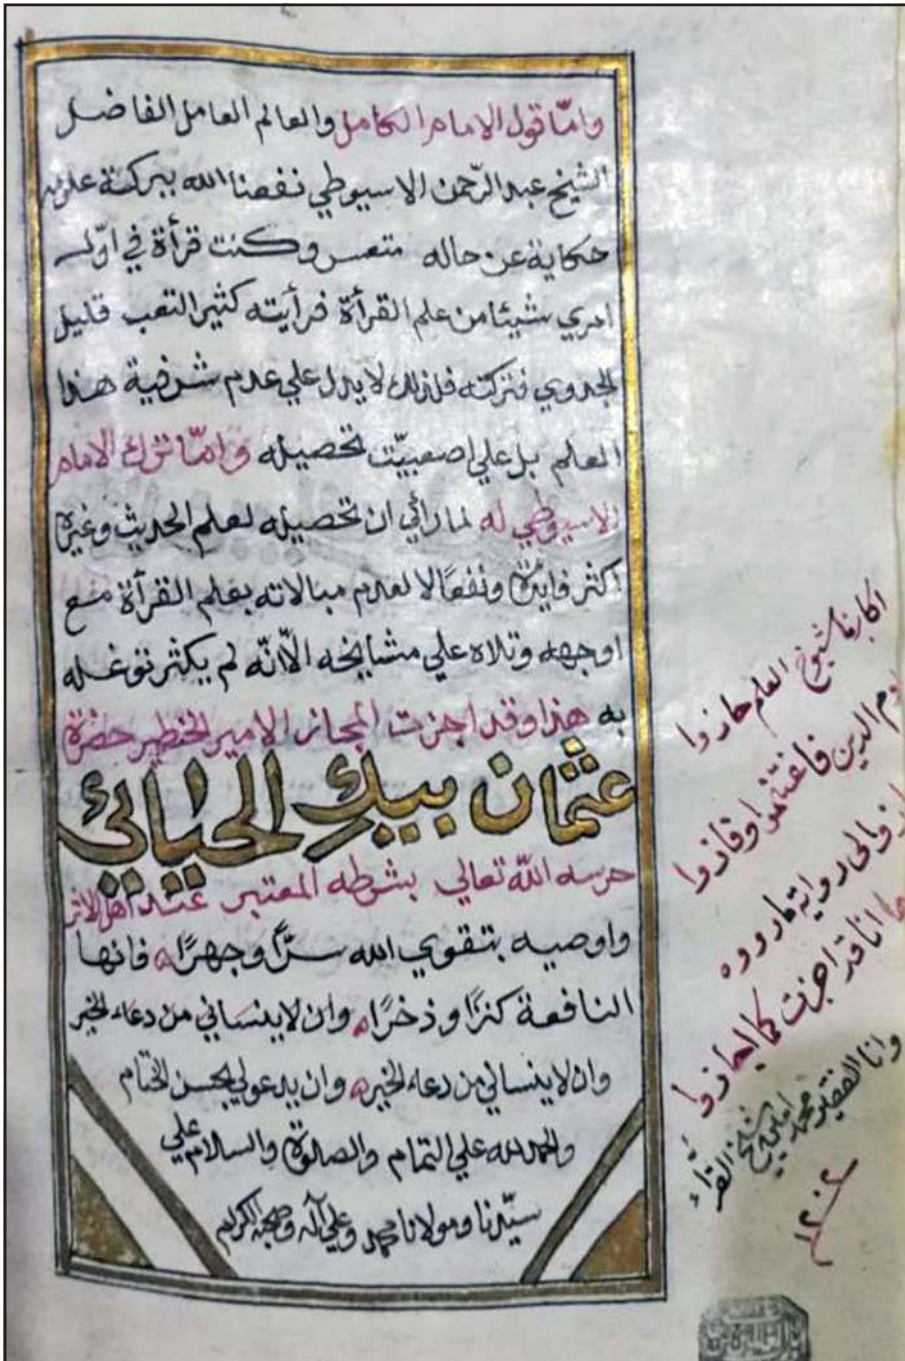 وامّا قول الامام الكامل والعالم العامل الفاضل
الشيخ عبد الرّحمن الاسيوطي نفعنا الله ببركة علومه
حكاية عن حاله وكنت قرأة في اوّل
امري شيئا من علم القرأة فرأيته كثير التعب قليل
الجدوي فتركته فلذلك لا يدل علي عدم شرفية هذا
العلم بل علي اصعبيّت تحصيله وامّا ترك الامام
الاسيوطي له لما رائي ان تحصيله لعلم الحديث وغيره
اكثر فايدة ونفعًا لا لعدم مبالاته بعلم القرأة مع
اوجهه وتلاه علي مشايخه الّا انّه لم يكثر توغله
به هذا وقد اجزت المجاز الامير الخطير حضرة
عثمان بيك الحيائي
حرسه الله تعالي بشرطه المعتبر عند اهل الاثر
واوصيه بتقوي الله سرًّا وجهرًا فانها
النافعة كنزًا وذخرًا وان لا ينساني من دعاء الخير
وان لا ينساني من دعاء الخير وان يدعو لي بحسن الختام
والحمد لله علي التمام والصلوة والسلام علي
سيّدنا ومولانا محمد وعلي آله وصحبه الكرام
اكابرنا شيوخ العلم حازوا
الدين فاغتنموا وفازوا
رواية ما رووه
انا قد اجزت كما اجازوا
وانا الفقير محمد امين شيخ القرّاء
١٢٠٢